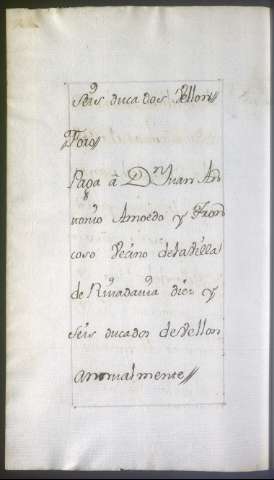 Seis ducados Vellon//
Foro//
Paga à Dn Juan An
tonio Amoedo y Tron
coso Vecino de la Villa
de Rivadavia diez y
seis ducados de Vellon
annualmente//